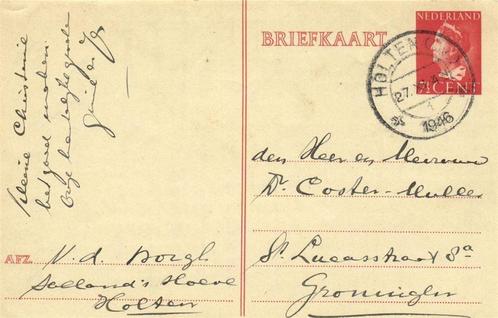 BRIEFKAART
NEDERLAND
7½ CENT
HOLTEN
27.
1946
1
Kleine Christinie
het goed maken.
Onze hartelijke
den Heer en Mevrouw
Dr. Coster-Muller
St. Lucasstraat 8a
Groningen
AFZ. V. d. Borgh
Salland's Hoeve
Holten